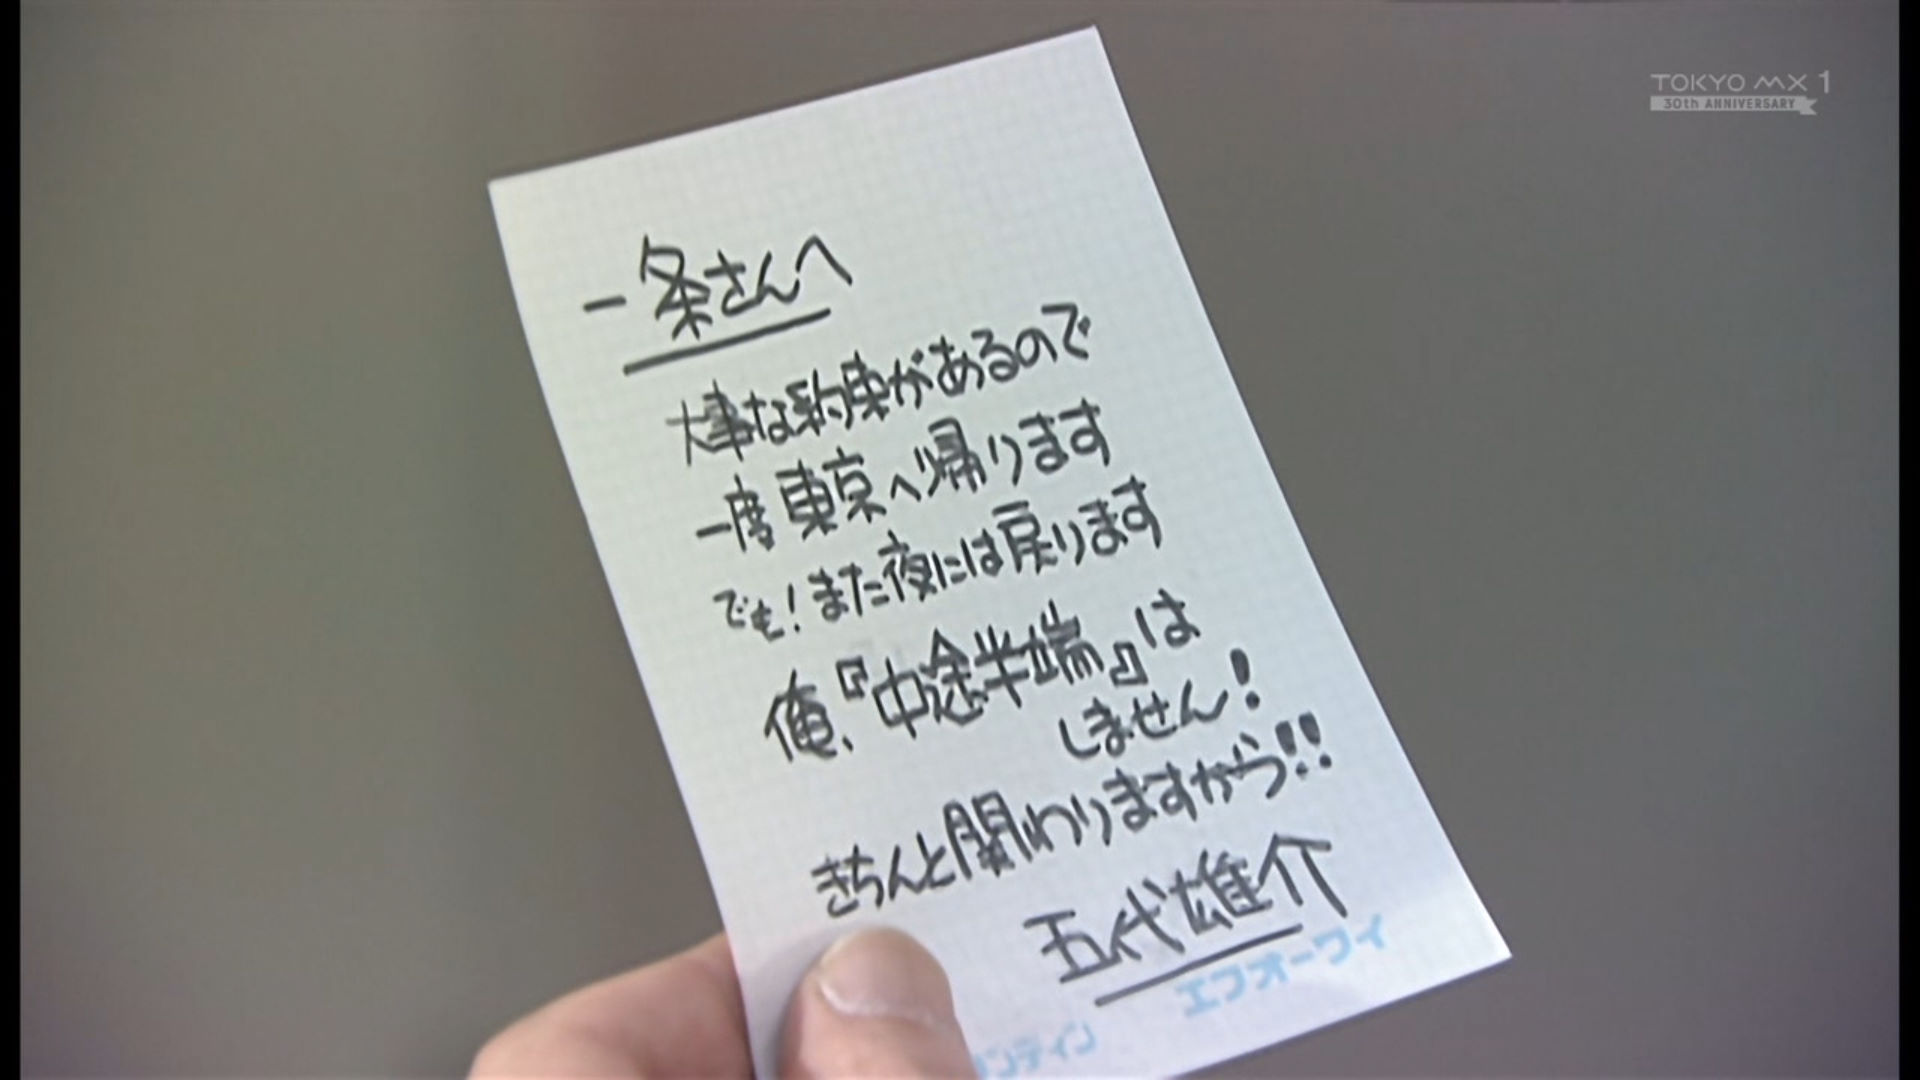 TOKYO MX 1
30th ANNIVERSARY
一条さんへ
大事な約束があるので
一度東京へ帰ります
でも!また夜には戻ります
俺、『中途半端』は
しません!
きちんと関わりますから!!
五代雄介
エフオーワイ
ンディン